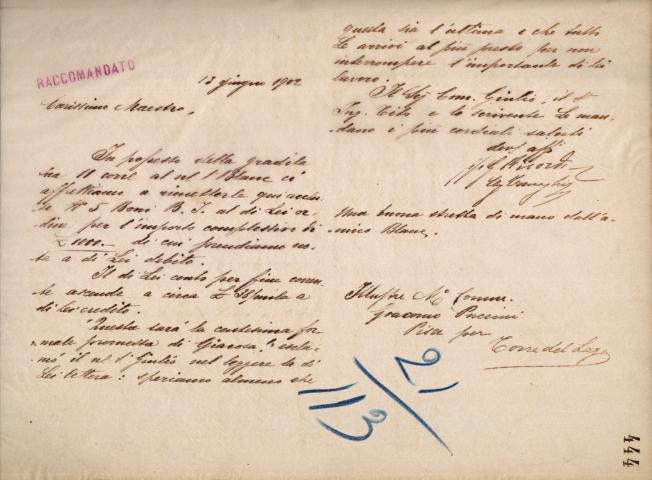 RACCOMANDATO
13 giugno 1902
Carissimo Maestro,
In risposta della gradita
sua 11 corr. al ns/ Sr Blanc ci
affrettiamo a rimetterle qui accluse
N° 5 Boni B. I. al di Lei ordine
per l'importo complessivo di
£ 1000.- di cui prendiamo nota
a di Lei debito.
Il di Lei conto per fine corrente
ascende a circa £ mila a
di Lei credito.
"Questa sarà la centesima formale
promessa di Giacosa!" esclamò
il ns/ Sr Giulio nel leggere la di
Lei lettera: speriamo almeno che
questa sia l'ultima e che tutto
Le arrivi al più presto per non
interrompere l'importante di Lei
lavoro.
Il Sig. Com. Giulio, il Sr
Ing. Tito e lo scrivente Le mandano
i più cordiali saluti
dev. aff.
p. G. Ricordi
Una buona stretta di mano dall'amico
Blanc.
Illustre Mo Comm.
Giacomo Puccini
Pisa per
Torre del Lago
21/113
444